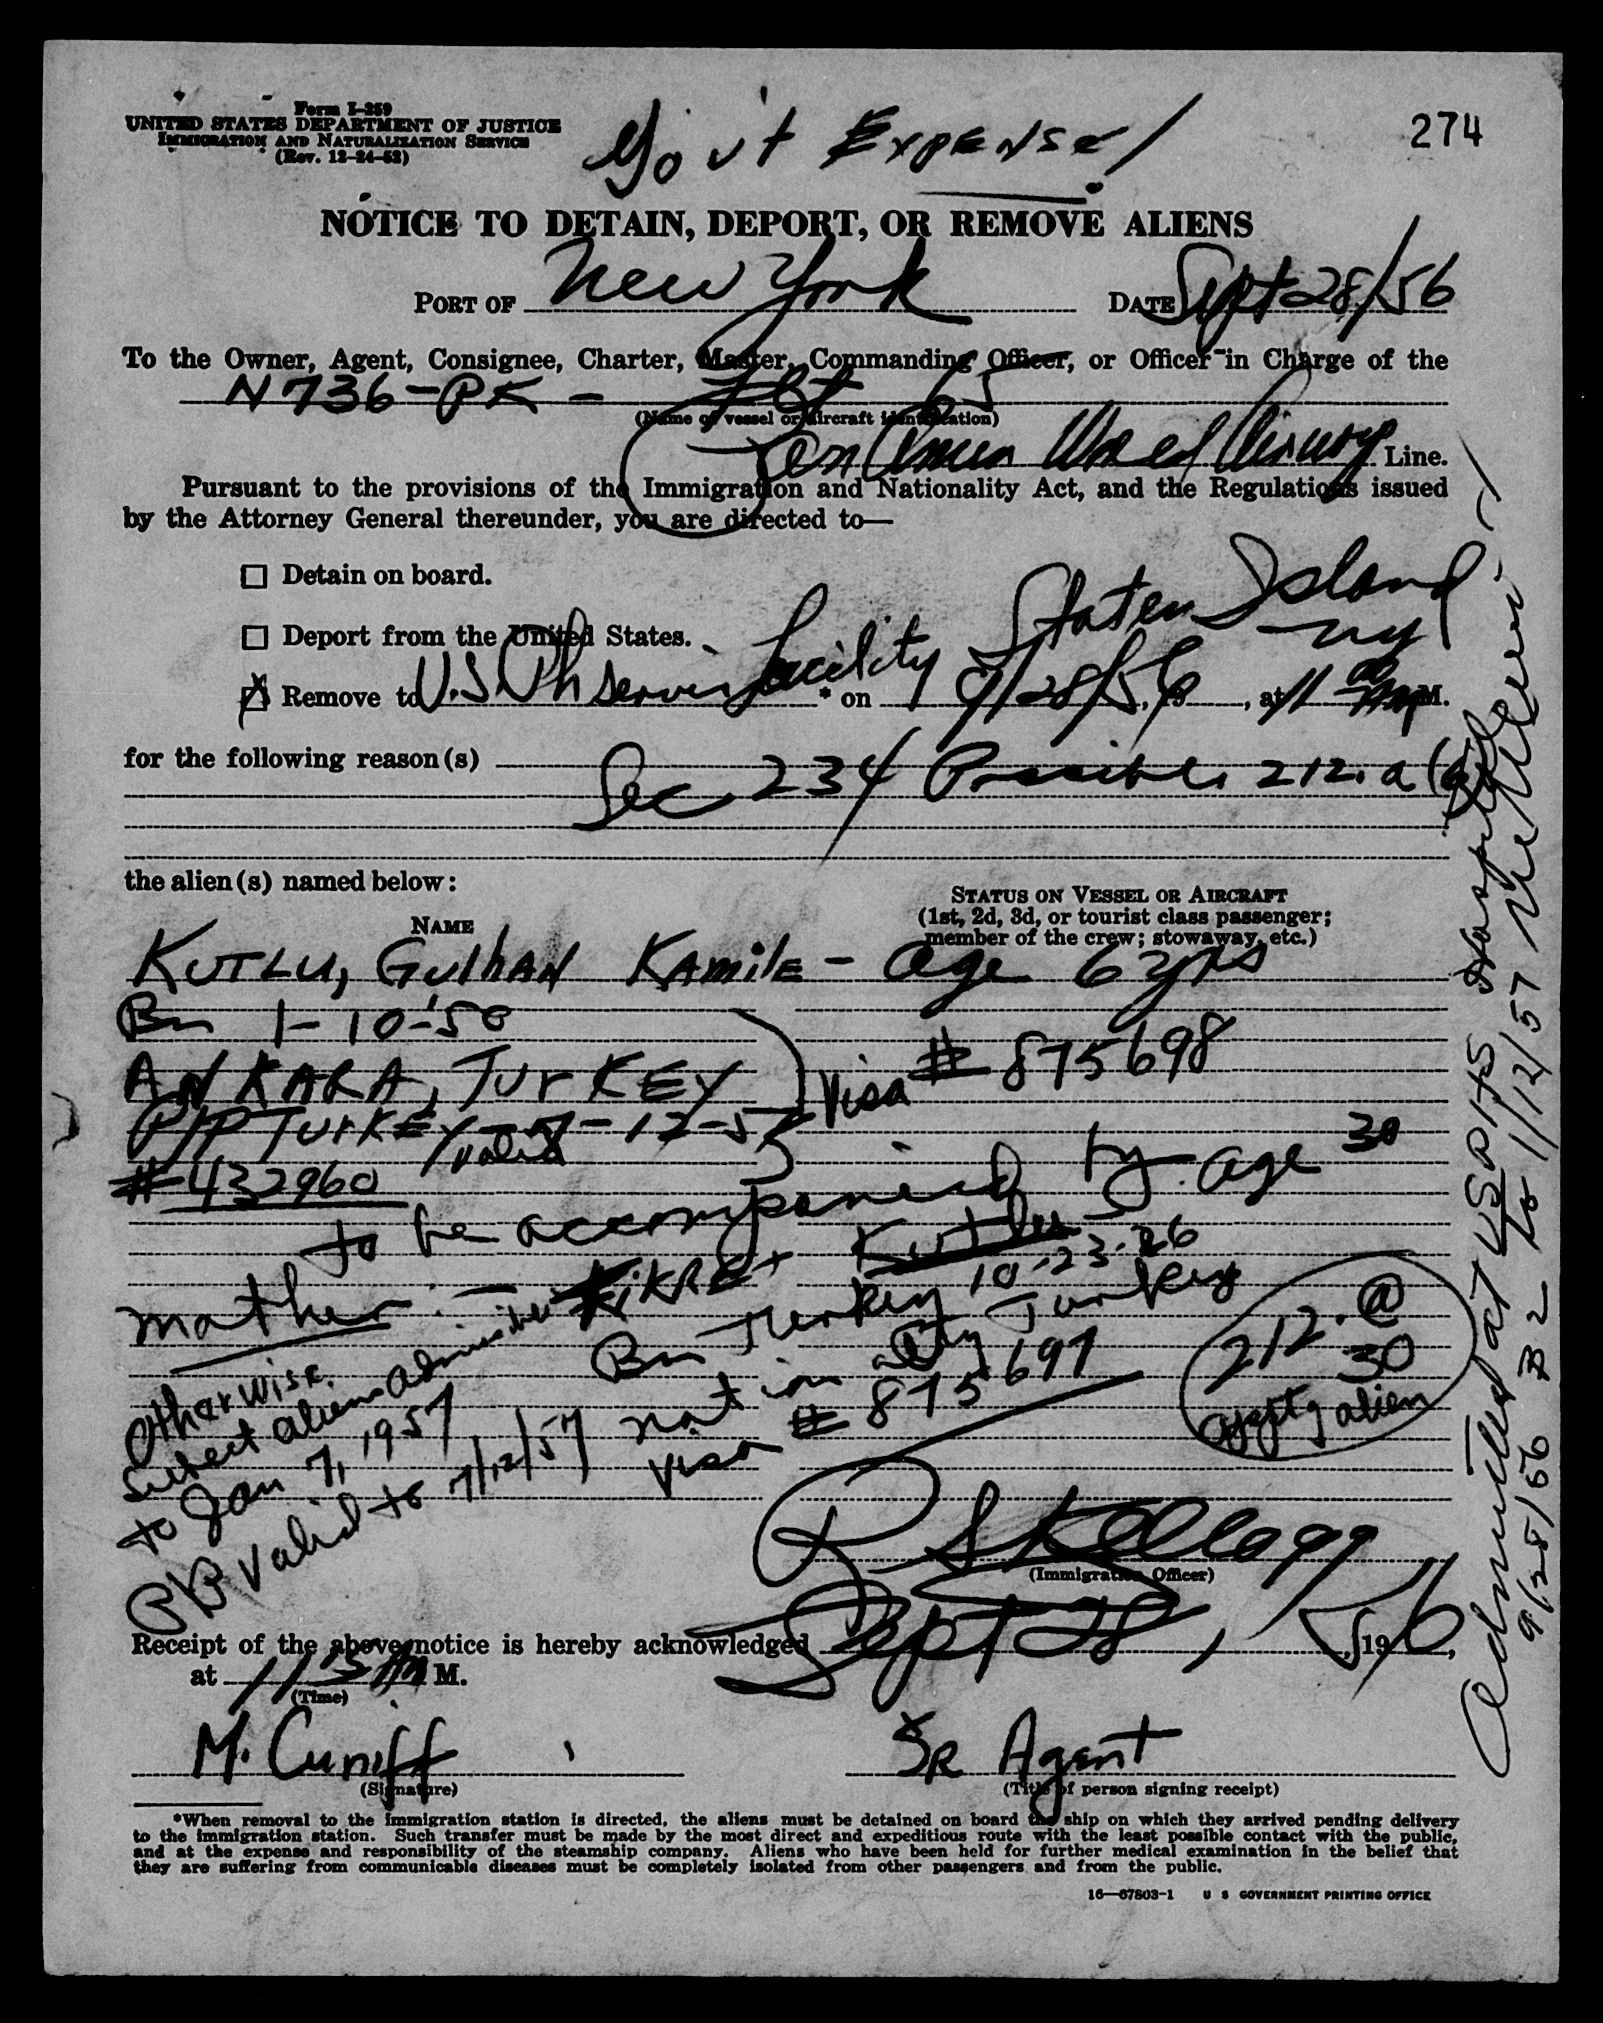 Form I-259
UNITED STATES DEPARTMENT OF JUSTICE
IMMIGRATION AND NATURALIZATION SERVICE
(Rev. 12-24-52)
Gov't Expense!
274
NOTICE TO DETAIN, DEPORT, OR REMOVE ALIENS
PORT OF New York DATE Sept 28/56
To the Owner, Agent, Consignee, Charter, Master, Commanding Officer, or Officer in Charge of the
N736-PK - Flt 65
(Name of vessel or aircraft identification)
Pan Amer World Airways Line.
Pursuant to the provisions of the Immigration and Nationality Act, and the Regulations issued
by the Attorney General thereunder, you are directed to—
☐ Detain on board.
☐ Deport from the United States.
Staten Island NY
☒ Remove to U.S. Ph Service facility * on 9/28/56, 19, at 11 am M.
for the following reason(s)
Sec 234 Possible 212.a(6)
the alien(s) named below:
NAME
STATUS ON VESSEL OR AIRCRAFT
(1st, 2d, 3d, or tourist class passenger;
member of the crew; stowaway, etc.)
KUTLU, GulhAN KAmilE - age 6 yrs
Bn 1-10-'50
ANKARA, TurKEY
Visa # 875698
P/P TurKEY valid 7-12-57
#432960
to be accompanied by age 30
mother: - FikRET Kutlu
Bn Turkey 10-23-26
nationality Turkey
Visa # 875697
212.@
30
appty alien
Otherwise
subject aliens admissible
to Jan 7, 1957
PP valid to 7/12/57
R S Kellogg
(Immigration Officer)
Receipt of the above notice is hereby acknowledged Sept 28, 1956,
at 11 15 AM M.
(Time)
M. Cuniff
(Signature)
SR Agent
(Title of person signing receipt)
*When removal to the immigration station is directed, the aliens must be detained on board the ship on which they arrived pending delivery
to the immigration station. Such transfer must be made by the most direct and expeditious route with the least possible contact with the public,
and at the expense and responsibility of the steamship company. Aliens who have been held for further medical examination in the belief that
they are suffering from communicable diseases must be completely isolated from other passengers and from the public.
16—67803-1 U S GOVERNMENT PRINTING OFFICE
Admitted at USPHS Hospital
9/28/56 B2 to 1/12/57